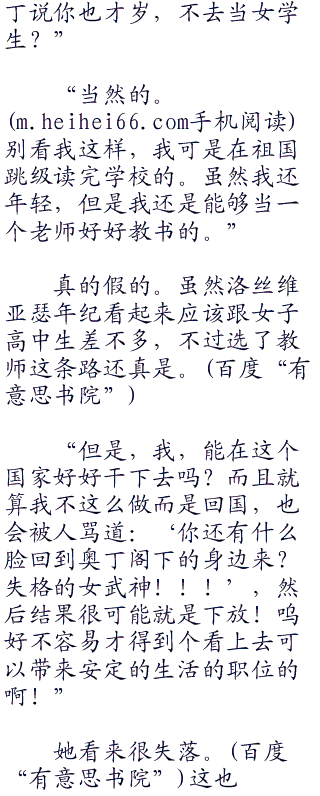 丁说你也才岁，不去当女学
生？”
“当然的。
(m.heihei66.com手机阅读)
别看我这样，我可是在祖国
跳级读完学校的。虽然我还
年轻，但是我还是能够当一
个老师好好教书的。”
真的假的。虽然洛丝维
亚瑟年纪看起来应该跟女子
高中生差不多，不过选了教
师这条路还真是。(百度“有
意思书院”)
“但是，我，能在这个
国家好好干下去吗？而且就
算我不这么做而是回国，也
会被人骂道：‘你还有什么
脸回到奥丁阁下的身边来？
失格的女武神！！！’，然
后结果很可能就是下放！呜
好不容易才得到个看上去可
以带来安定的生活的职位的
啊！”
她看来很失落。(百度
“有意思书院”)这也